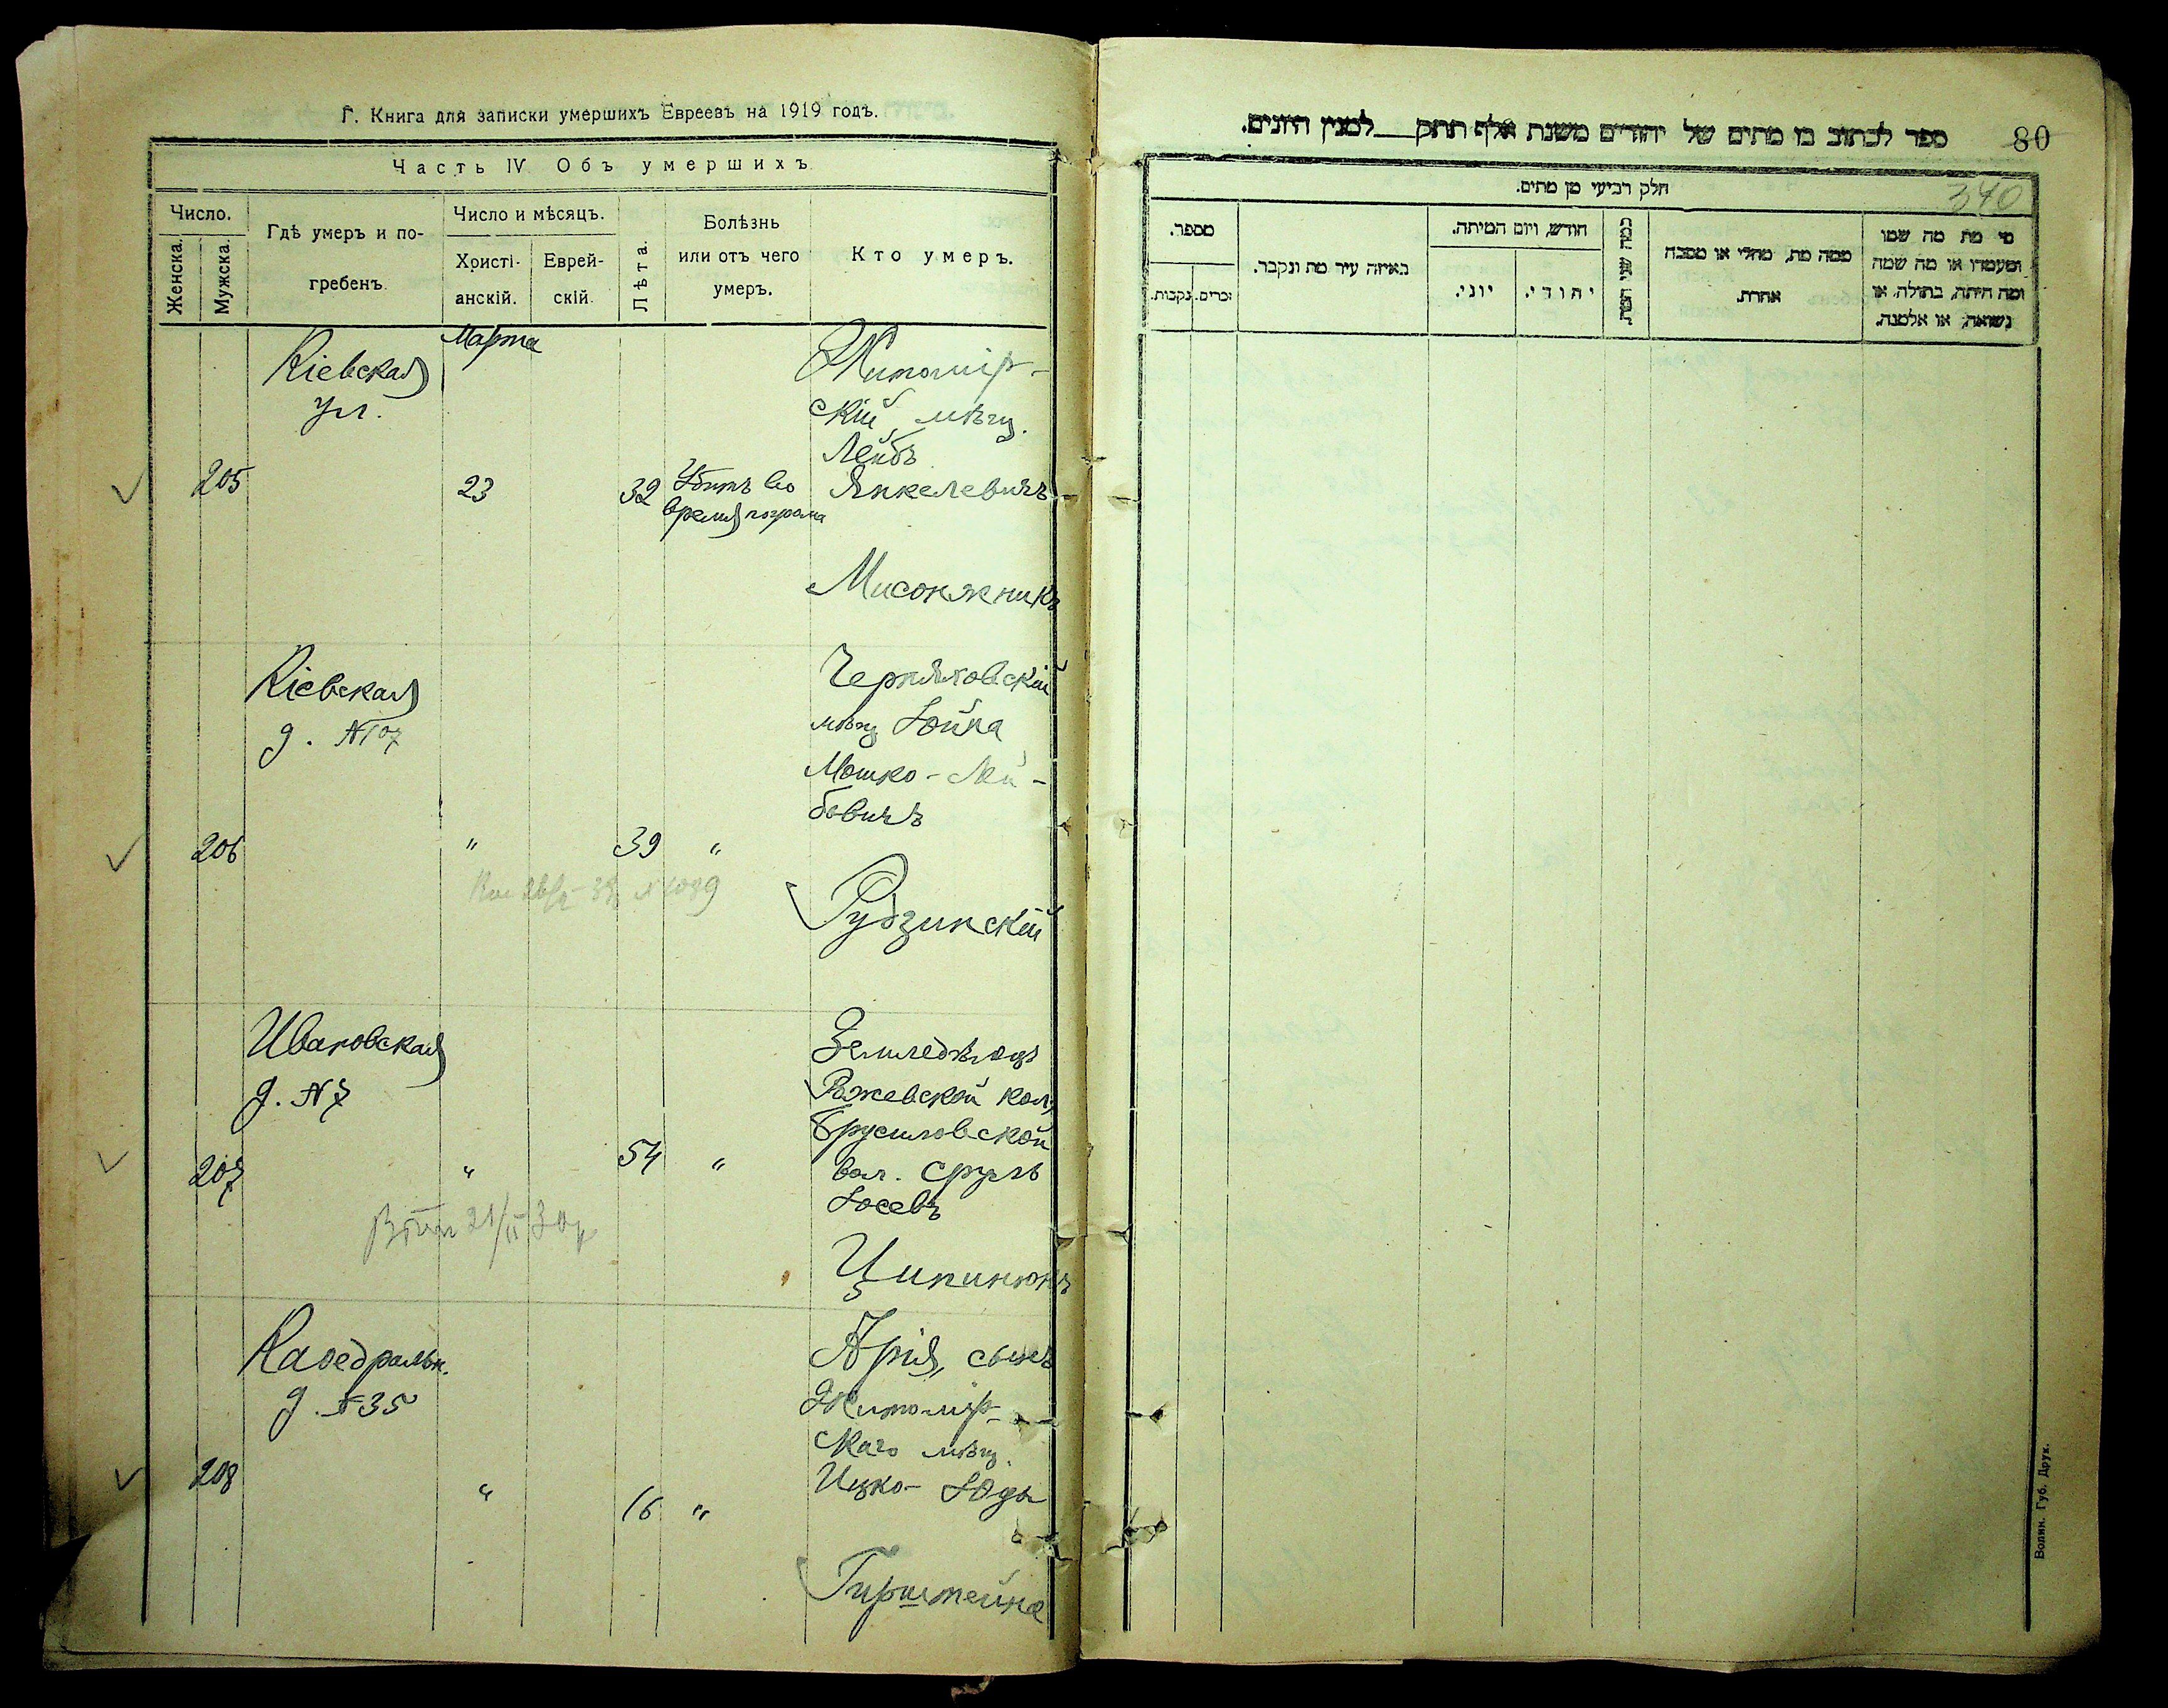 Г. Книга для записки умершихъ Евреевъ на 1919 годъ.
Часть IV Объ умершихъ
Число.
Женска.
Мужска.
Гдѣ умеръ и по-
гребенъ.
Число и мѣсяцъ.
Христі-
анскій.
Еврей-
скій.
Лѣта.
Болѣзнь
или отъ чего
умеръ.
Кто умеръ.
Марта
Кіевская
ул.
205
23
32
Убитъ во
время погрома
Житомір-
скій мѣщ.
Лейбъ
Янкелевичъ
Мисонжникъ
Кіевская
д. №107
206
"
39
"
Черняховскій
мѣщ Іойна
Мошко-Лей-
бовичъ
Рудзинскій
Ивановская
д. №7
207
"
54
"
Земледѣлецъ
Ражевской кол,
Брусиловской
вол. Сруль
Іосевъ
Ципинюкъ
21/II 30 г
Каѳедральн.
д. №35
208
"
16
"
Арія, сынъ
Житомір-
скаго мѣщ.
Ицко-Юды
Гирштейна
80
ספר לכתוב בו מתים של יהודים משנת אלף תתק___למנין היונים.
340
חלק רביעי מן מתים.
מספר.
זכרים.
נקבות.
באיזה עיר מת ונקבר.
חודש, ויום המיתה.
יוני.
יהודי.
כמה שני המת.
ממה מת, מחלי או מסבה
אחרת.
מי מת מה שמו
ומעמדו או מה שמה
ומה היתה, בתולה, או
נשואה, או אלמנה.
Волин. Губ. Друк.